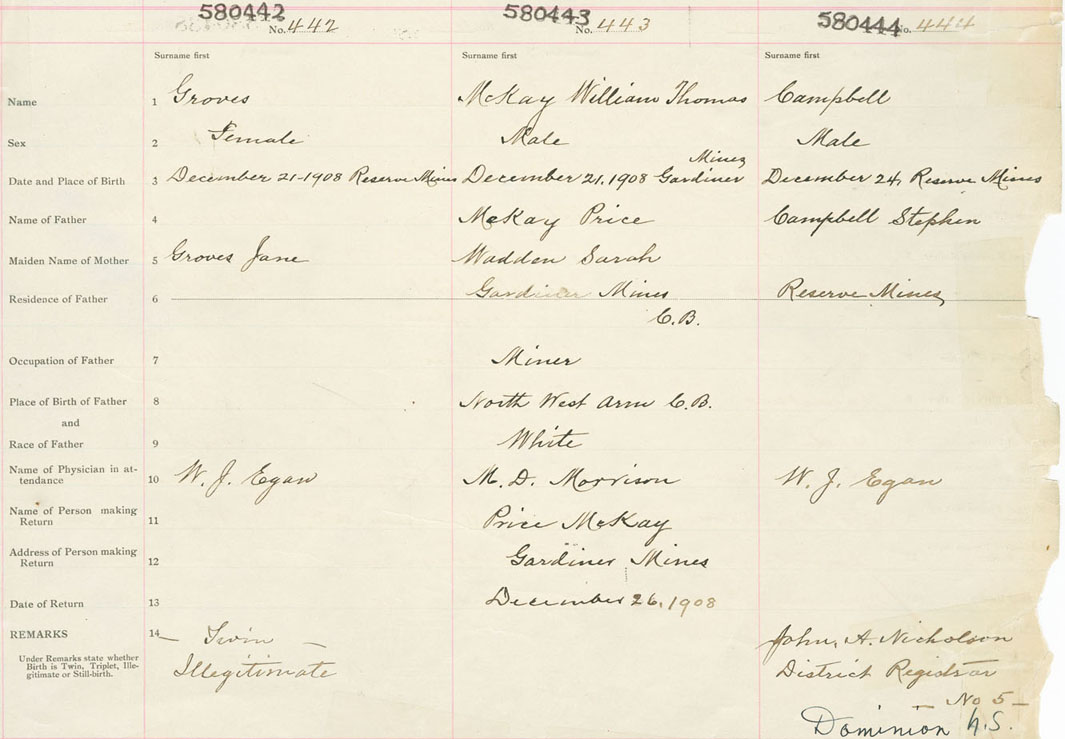 580442 580443 580444
No. 442 No. 443 No. 444
Surname first Surname first Surname first
Name 1 Groves McKay William Thomas Campbell
Sex 2 Female Male Male
Mines
Date and Place of Birth 3 December 21-1908 Reserve Mines December 21, 1908 Gardiner December 24, Reserve Mines
Name of Father 4 McKay Price Campbell Stephen
Maiden Name of Mother 5 Groves Jane Wadden Sarah
Residence of Father 6 Gardiner Mines Reserve Mines
C.B.
Occupation of Father 7 Miner
Place of Birth of Father 8 North West Arm C.B.
and
Race of Father 9 White
Name of Physician in at-
tendance 10 W. J. Egan M. D. Morrison W. J. Egan
Name of Person making
Return 11 Price McKay
Address of Person making
Return 12 Gardiner Mines
Date of Return 13 December 26, 1908
REMARKS 14 — Twin — John, A. Nicholson
Under Remarks state whether
Birth is Twin, Triplet, Ille-
gitimate or Still-birth. Illegitimate District Registrar
— No 5 —
Dominion N.S.